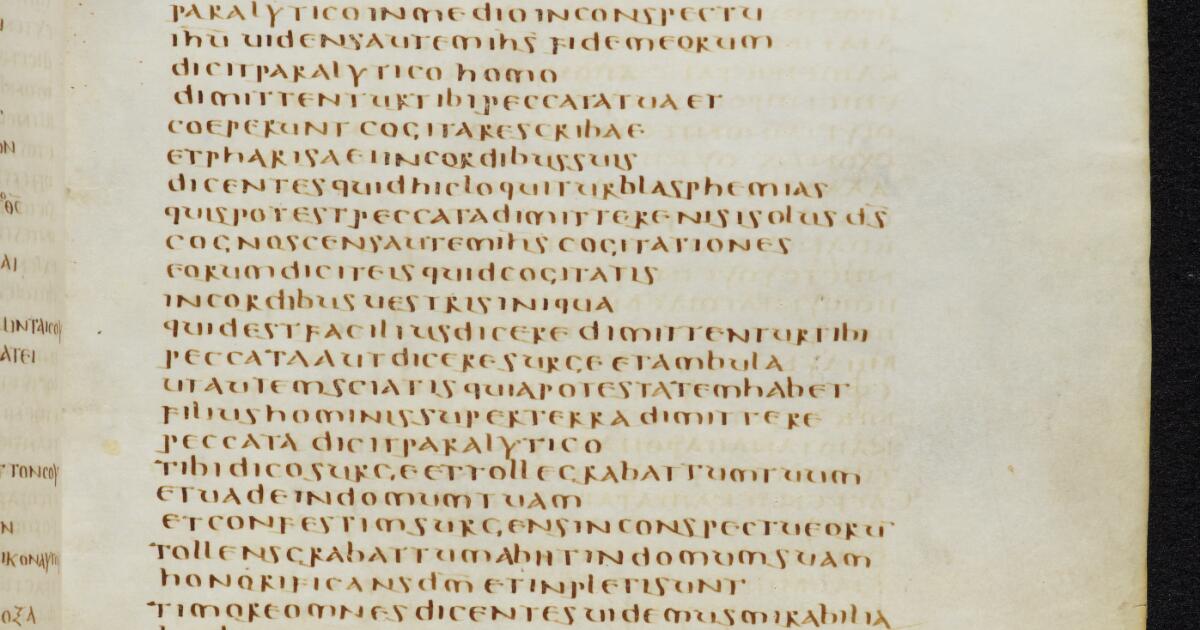 paralyticoinmedioinconspectu
ihū uidensautemihs̄ fidemeorum
dicitparalytico homo
dimittenturtibipeccatatua et
coeperunt cogitarescribae
etpharisaeiincordibussuis
dicentesquidhicloquiturblasphemias
quispotestpeccatadimittere nisisolus ds̄
cognoscensautemihs̄ cogitationes
eorumdiciteisquidcogitatis
incordibusuestrisiniqua
quidestfaciliusdicere dimittenturtibi
peccataautdiceresurge etambula
utautemsciatisquiapotestatemhabet
filiushominissuperterra dimittere
peccata dicitparalytico
tibidicosurgeettollegrabattumtuum
etuadeindomumtuam
etconfestimsurgensinconspectueoru̅
tollensgrabattumabiitindomumsuam
honorificansdm̄ etinpletisunt
timoreomnesdicentesuidemusmirabilia